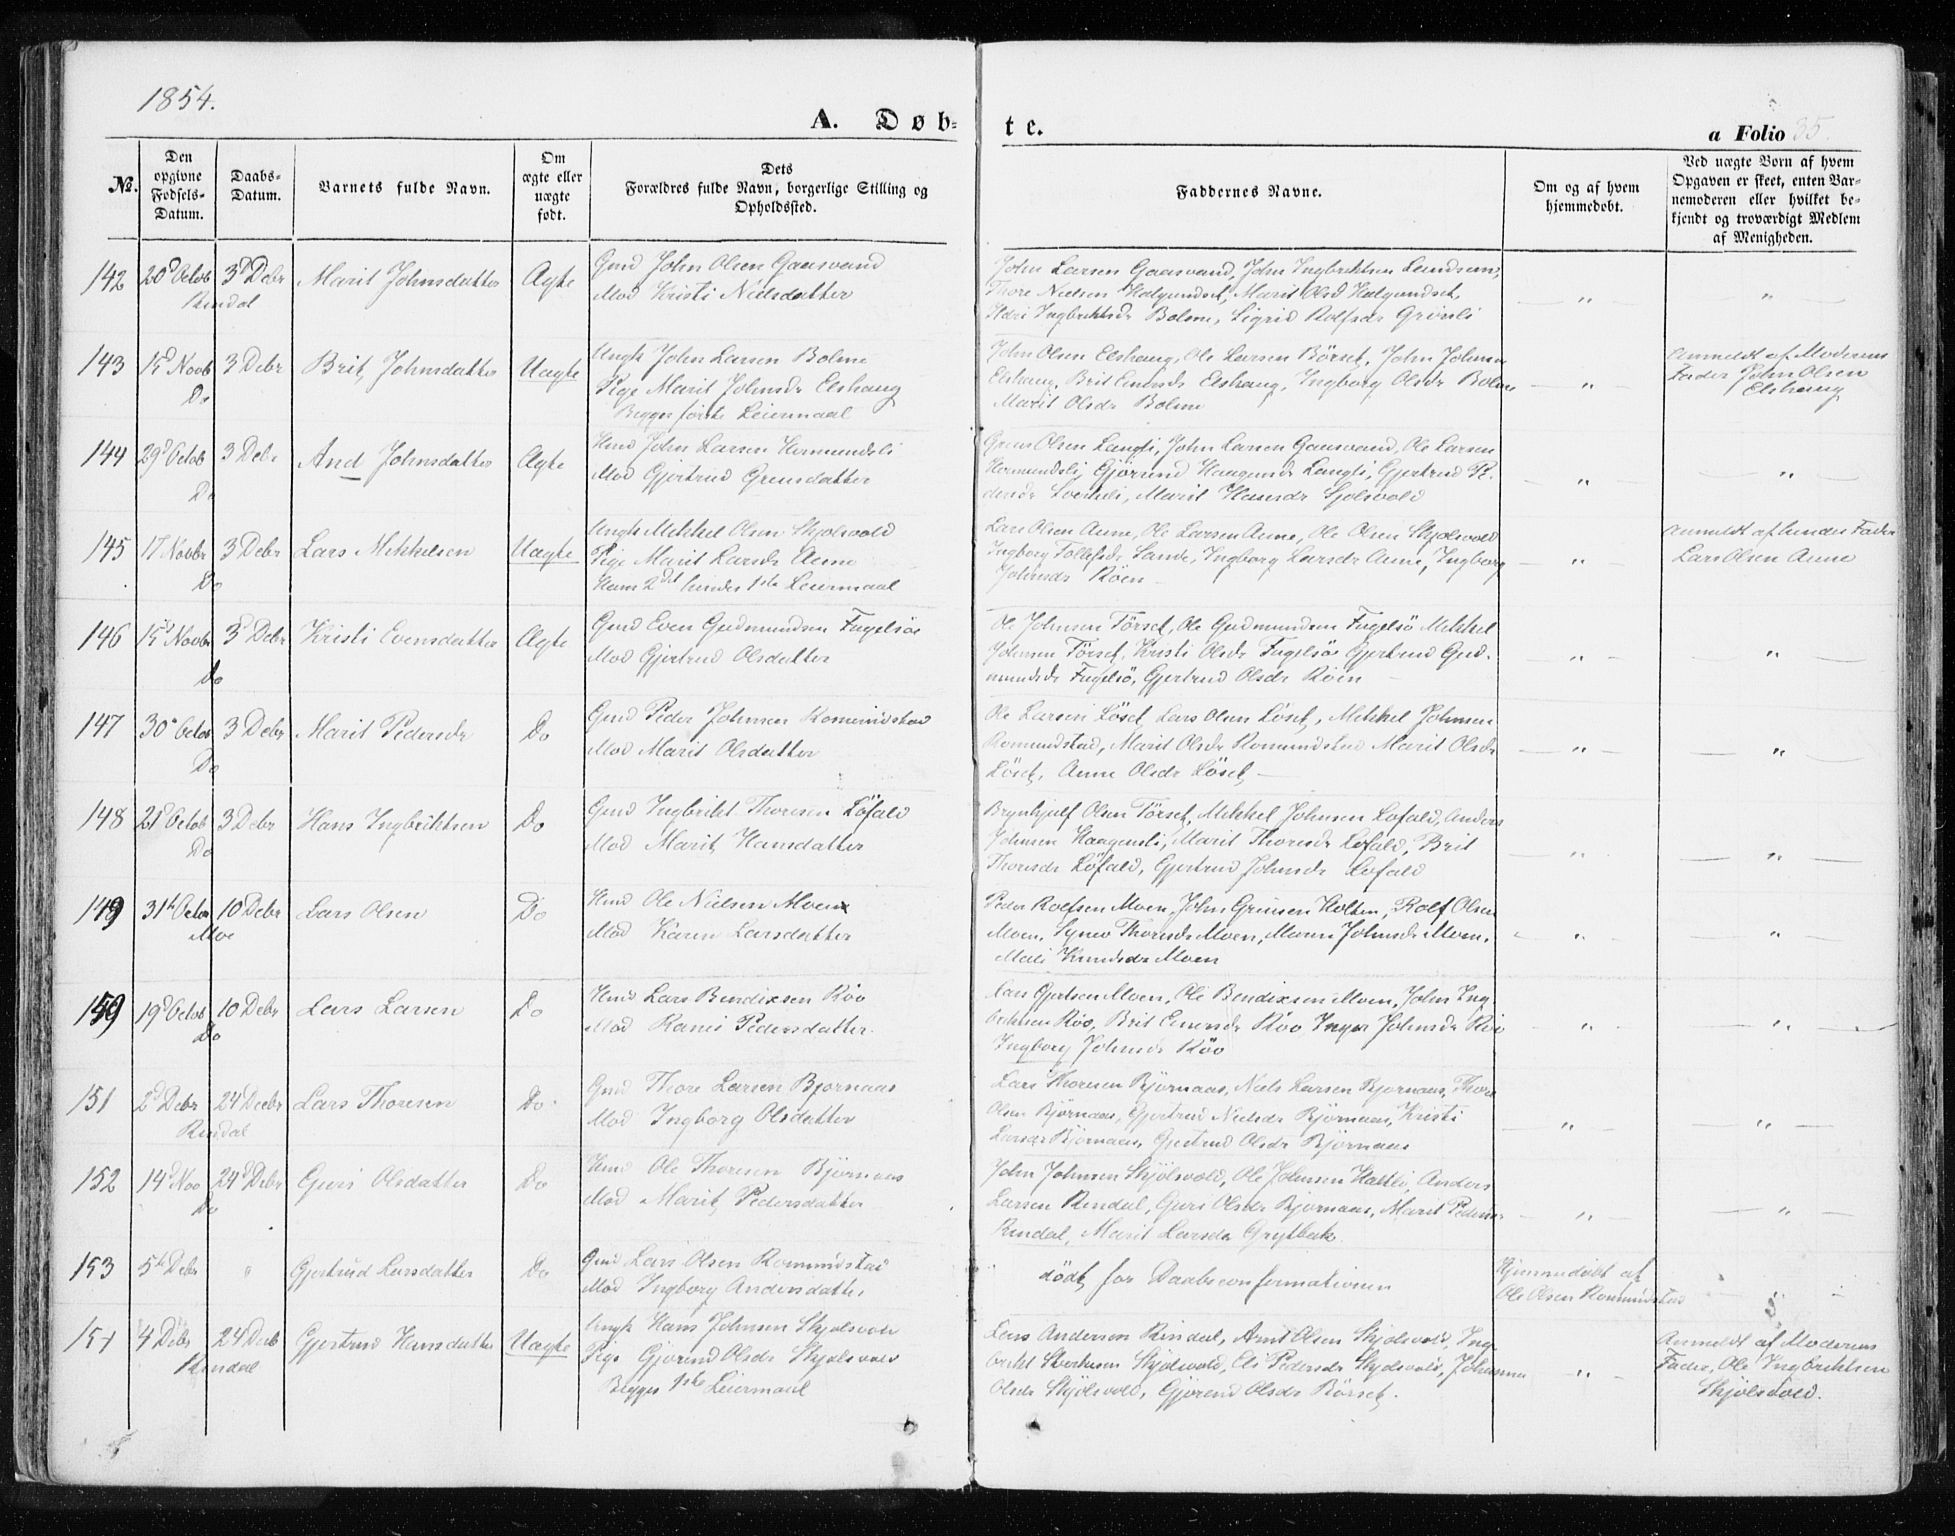 1854.
A. Døb-
te.
a Folio 35.
No.
Den opgivne Fødsels-Datum.
Daabs-Datum.
Barnets fulde Navn.
Om ægte eller uægte født.
Dets Forældres fulde Navn, borgerlige Stilling og Opholdssted.
Faddernes Navne.
Om og af hvem hjemmedøbt.
Ved uægte Børn af hvem Opgaven er skeet, enten Barnemoderen eller hvilket bekjendt og troværdigt Medlem af Menigheden.
142 20d Octob 3d Debr Marit Johnsdatter Ægte Gmd John Olsen Gaasvand
Rindal Mod Kristi Nielsdatter
John Larsen Gaasvand, John Ingbrichtsen
Thore Nielsen Halgundset, Marit Olsd Halgundset,
Ildri Ingbrichtsdr Bolme, Sigrid Rolfsdr Grönli
143 15d Novb 3 Debr Brit Johnsdatter Uægte Ungk John Larsen Bolme
Do Pige Marit Johnsdr Elshaug
Begges förste Leiermaal
John Olsen Elshaug, Ole Larsen Börset, John Johnsen
Elshaug, Brit Einersdr Elshaug, Ingborg Olsdr Bolme
Marit Olsdr Bolme
Anmeldt af Moderens
Fader John Olsen
Elshaug
144 29d Octob 3 Debr And Johnsdatter Ægte Hmd John Larsen Hermundsli
Do Mod Gjertrud Gremsdatter
Olsen Langli, John Larsen Gaasvand, Ole Larsen
Hermundsli, Gjörend Haagensdr Langli, Gjertrud Pe-
dersdr, Marit Hansdr Sjolsvold
145 17 Novbr 3 Debr Lars Mikkelsen Uægte Ungk Mikkel Olsen Skjolsvold
Do Pige Marit Larsdr Aune
Ham 2det hendes 1ste Leiermaal
Lars Olsen Aune, Ole Larsen Aune, Ole Olsen Skjolsvold
Ingborg Tollefsdr Sande, Ingborg Larsdr Aune, Ingborg
Johnsdr Röen
Anmeldt af hendes Fader
Lars Olsen Aune
146 15d Novbr 3d Debr Kristi Evensdatter Ægte Gmd Even Gudmundsen Fugelsöe
Do Mod Gjertrud Olsdatter
Ole Johnsen Törset, Ole Gudmundsen Fugelsö Mikkel
Johnsen Törset, Kristi Olsdr Fugelsöe Gjertrud Gud-
mundsdr Fugelsö, Gjertrud Olsdr Röen
147 30e Octob 3 Debr Marit Pedersdr Do Gmd Peder Johnsen Romundstad
Do Mod Marit Olsdatter
Ole Larsen Löset, Lars Olsen Löset, Mikkel Johnsen
Romundstad, Marit Olsdr Romundstad Marit Olsdr
Löset, Anne Olsdr Löset
148 21d Octob 3 Debr Hans Ingbrichtsen Do Gmd Ingbricht Thoresen Löfald
Do Mod Marit Hansdatter
Brynhjulf Olsen Törset, Mikkel Johnsen Lofald, Anders
Johnsen Haagensli, Marit Thoresdr Lofald, Brit
Thoresdr Löfald, Gjertrud Johnsdr Lofald
149 31te Octor 10 Debr Lars Olsen Do Hmd Ole Nielsen Moen
Moe Mod Karen Larsdatter
Peder Rolfsen Moen, John Grimsen Holten, Rolf Olsen
Moen, Synev Thoresdr Moen, Maren Johnsdr Moen,
Mali Knudsdr Moen
150 19d Octob 10 Debr Lars Larsen Do Hmd Lars Bendixsen Röv
Do Mod Rannei Pedersdatter
Lars Gjertsen Moen, Ole Bendixsen Moen, John Ing-
brichtsen Röv, Brit Einersdr Röv Inger Johnsdr Röv
Ingborg Johnsdr Röv
151 2d Debr 24 Decbr Lars Thoresen Do Gmd Thore Larsen Bjornaas
Rindal Mod Ingborg Olsdatter
Lars Thoresen Bjørnaas, Niels Larsen Bjornaas, Thore
Olsen Bjørnaas, Gjertrud Nielsdr Bjørnaas, Kristi
Larsdr Bjørnaas, Gjertrud Olsdr Bjørnaas
152 14d Nov 24d Debr Guri Olsdatter Do Hmd Ole Thoresen Björnaas
Do Mod Marit Pedersdatter
John Johnsen Skjölsvold, Ole Johnsen Haltli, Anders
Larsen Rindal, Guri Olsdr Bjørnaas, Marit Pedersdr
Rindal, Marit Larsdr Grytbak
153 5te Debr " Gjertrud Larsdatter Do Gmd Lars Olsen Romundstad
Mod Ingborg Andersdatter
Död för Daabsconfirmationen
Hjemmedöbt af
Ole Olsen Romundstad
154 4 Debr 24 Decb Gjertrud Hansdatter Uægte Ungk Hans Johnsen Skjolsvold
Rindal Pige Gjörend Olsdr Skjølsvold
Begges 1ste Leiermaal
Lars Andersen Rindal, Arnt Olsen Skjolsvold, Ing-
bricht Skjölsvold, Eli Pedersdr Skjolsvold, Johanna
Olsdr Skjölsvold, Gjörend Olsdr Börset.
Anmeldt af Moderens
Fader, Ole Ingbrichtsen
Skjölsvold.